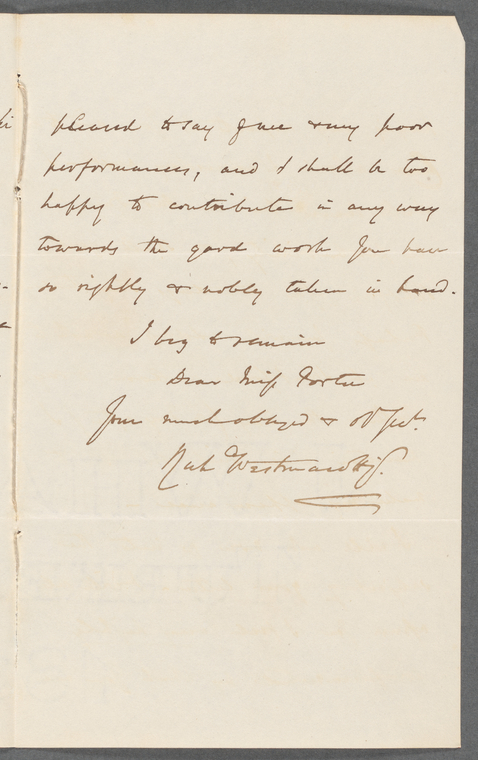 pleased to say of me & my poor
performances, and I shall be too
happy to contribute in any way
towards the good work you have
so rightly & nobly taken in hand.
I beg to remain
Dear Miss Porter
Your much obliged & obt sert.